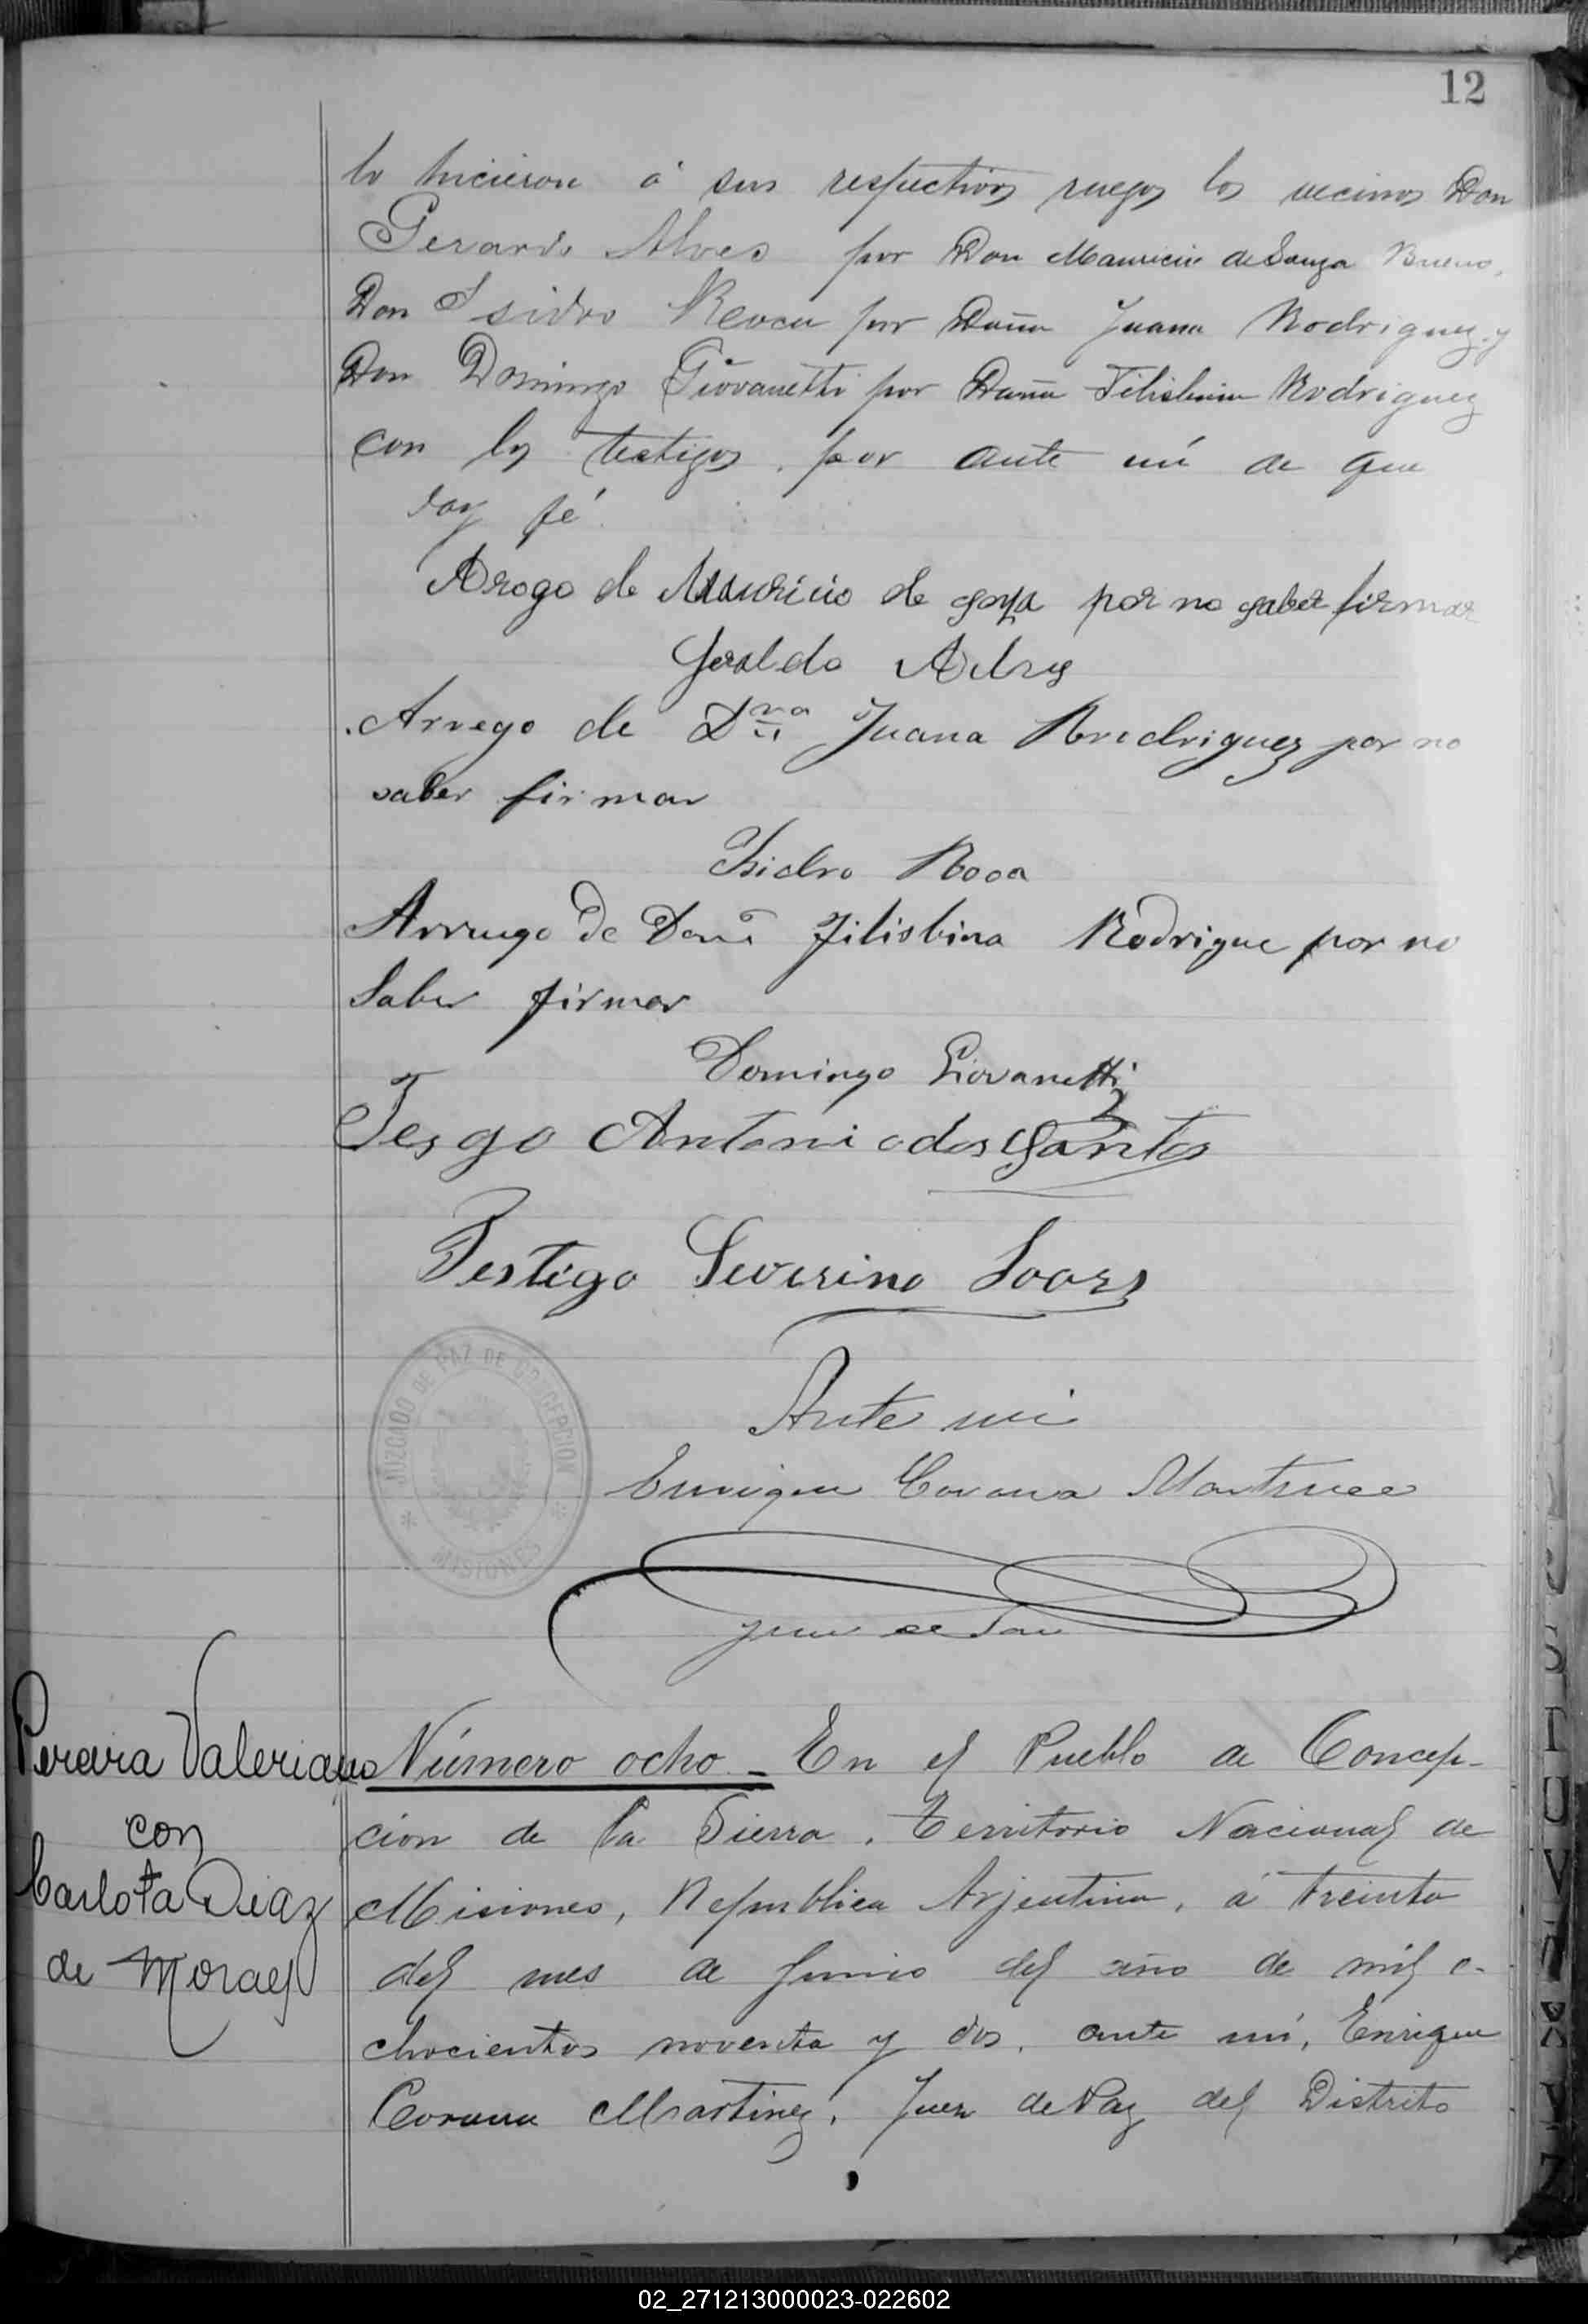 12
lo hicieron á sus respectivos ruegos los vecinos Don
Gerardo Alves por Don Mauricio de Souza Bueno,
Don Isidro Roca por Doña Juana Rodriguez y
Don Domingo Giovanetti por Doña Filisbina Rodriguez
con los testigos, por ante mí de que
doy fé.
Arogo de Mauricio de por no saber firmar
Geraldo
Arrego de Dña Juana Rodriguez por no
saber firmar
Isidro Roca
Arruego de Doña Filisbina Rodrigue por no
Saber firmar
Domingo Giovanetti
Tesgo Antonio dos Santos
Testigo Severino Soares
Ante mi
JUZGADO DE PAZ DE CONCEPCION
* MISIONES *
Enrique Corona Martinez
Juez de Paz
Pereira Valeriano
con
Carlota Diaz
de Moraes
Número ocho - En el Pueblo de Concep-
cion de la Sierra, Territorio Nacional de
Misiones, Republica Arjentina, á treinta
del mes de Junio del año de mil o-
chocientos noventa y dos, ante mí, Enrique
Corona Martinez, Juez de Paz del Distrito
02_271213000023-022602